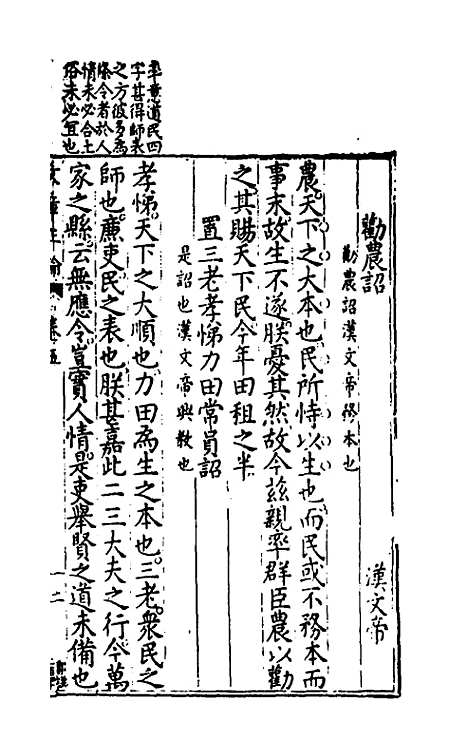 勸農詔 漢文帝
勸農詔漢文帝務本也
農天下之大本也民所恃以生也而民或不務本而
事末故生不遂朕憂其然故今茲親率群臣農以勸
之其賜天下民今年田租之半
置三老孝悌力田常員詔
是詔也漢文帝興教也
孝悌天下之大順也力田為生之本也三老眾民之
師也廉吏民之表也朕甚嘉此二三大夫之行今萬
家之縣云無應令豈實人情是吏舉賢之道未備也
率意道民四
字甚得師表
之方彼多為
條令者於人
情未必合土
俗未必宜也
卷五